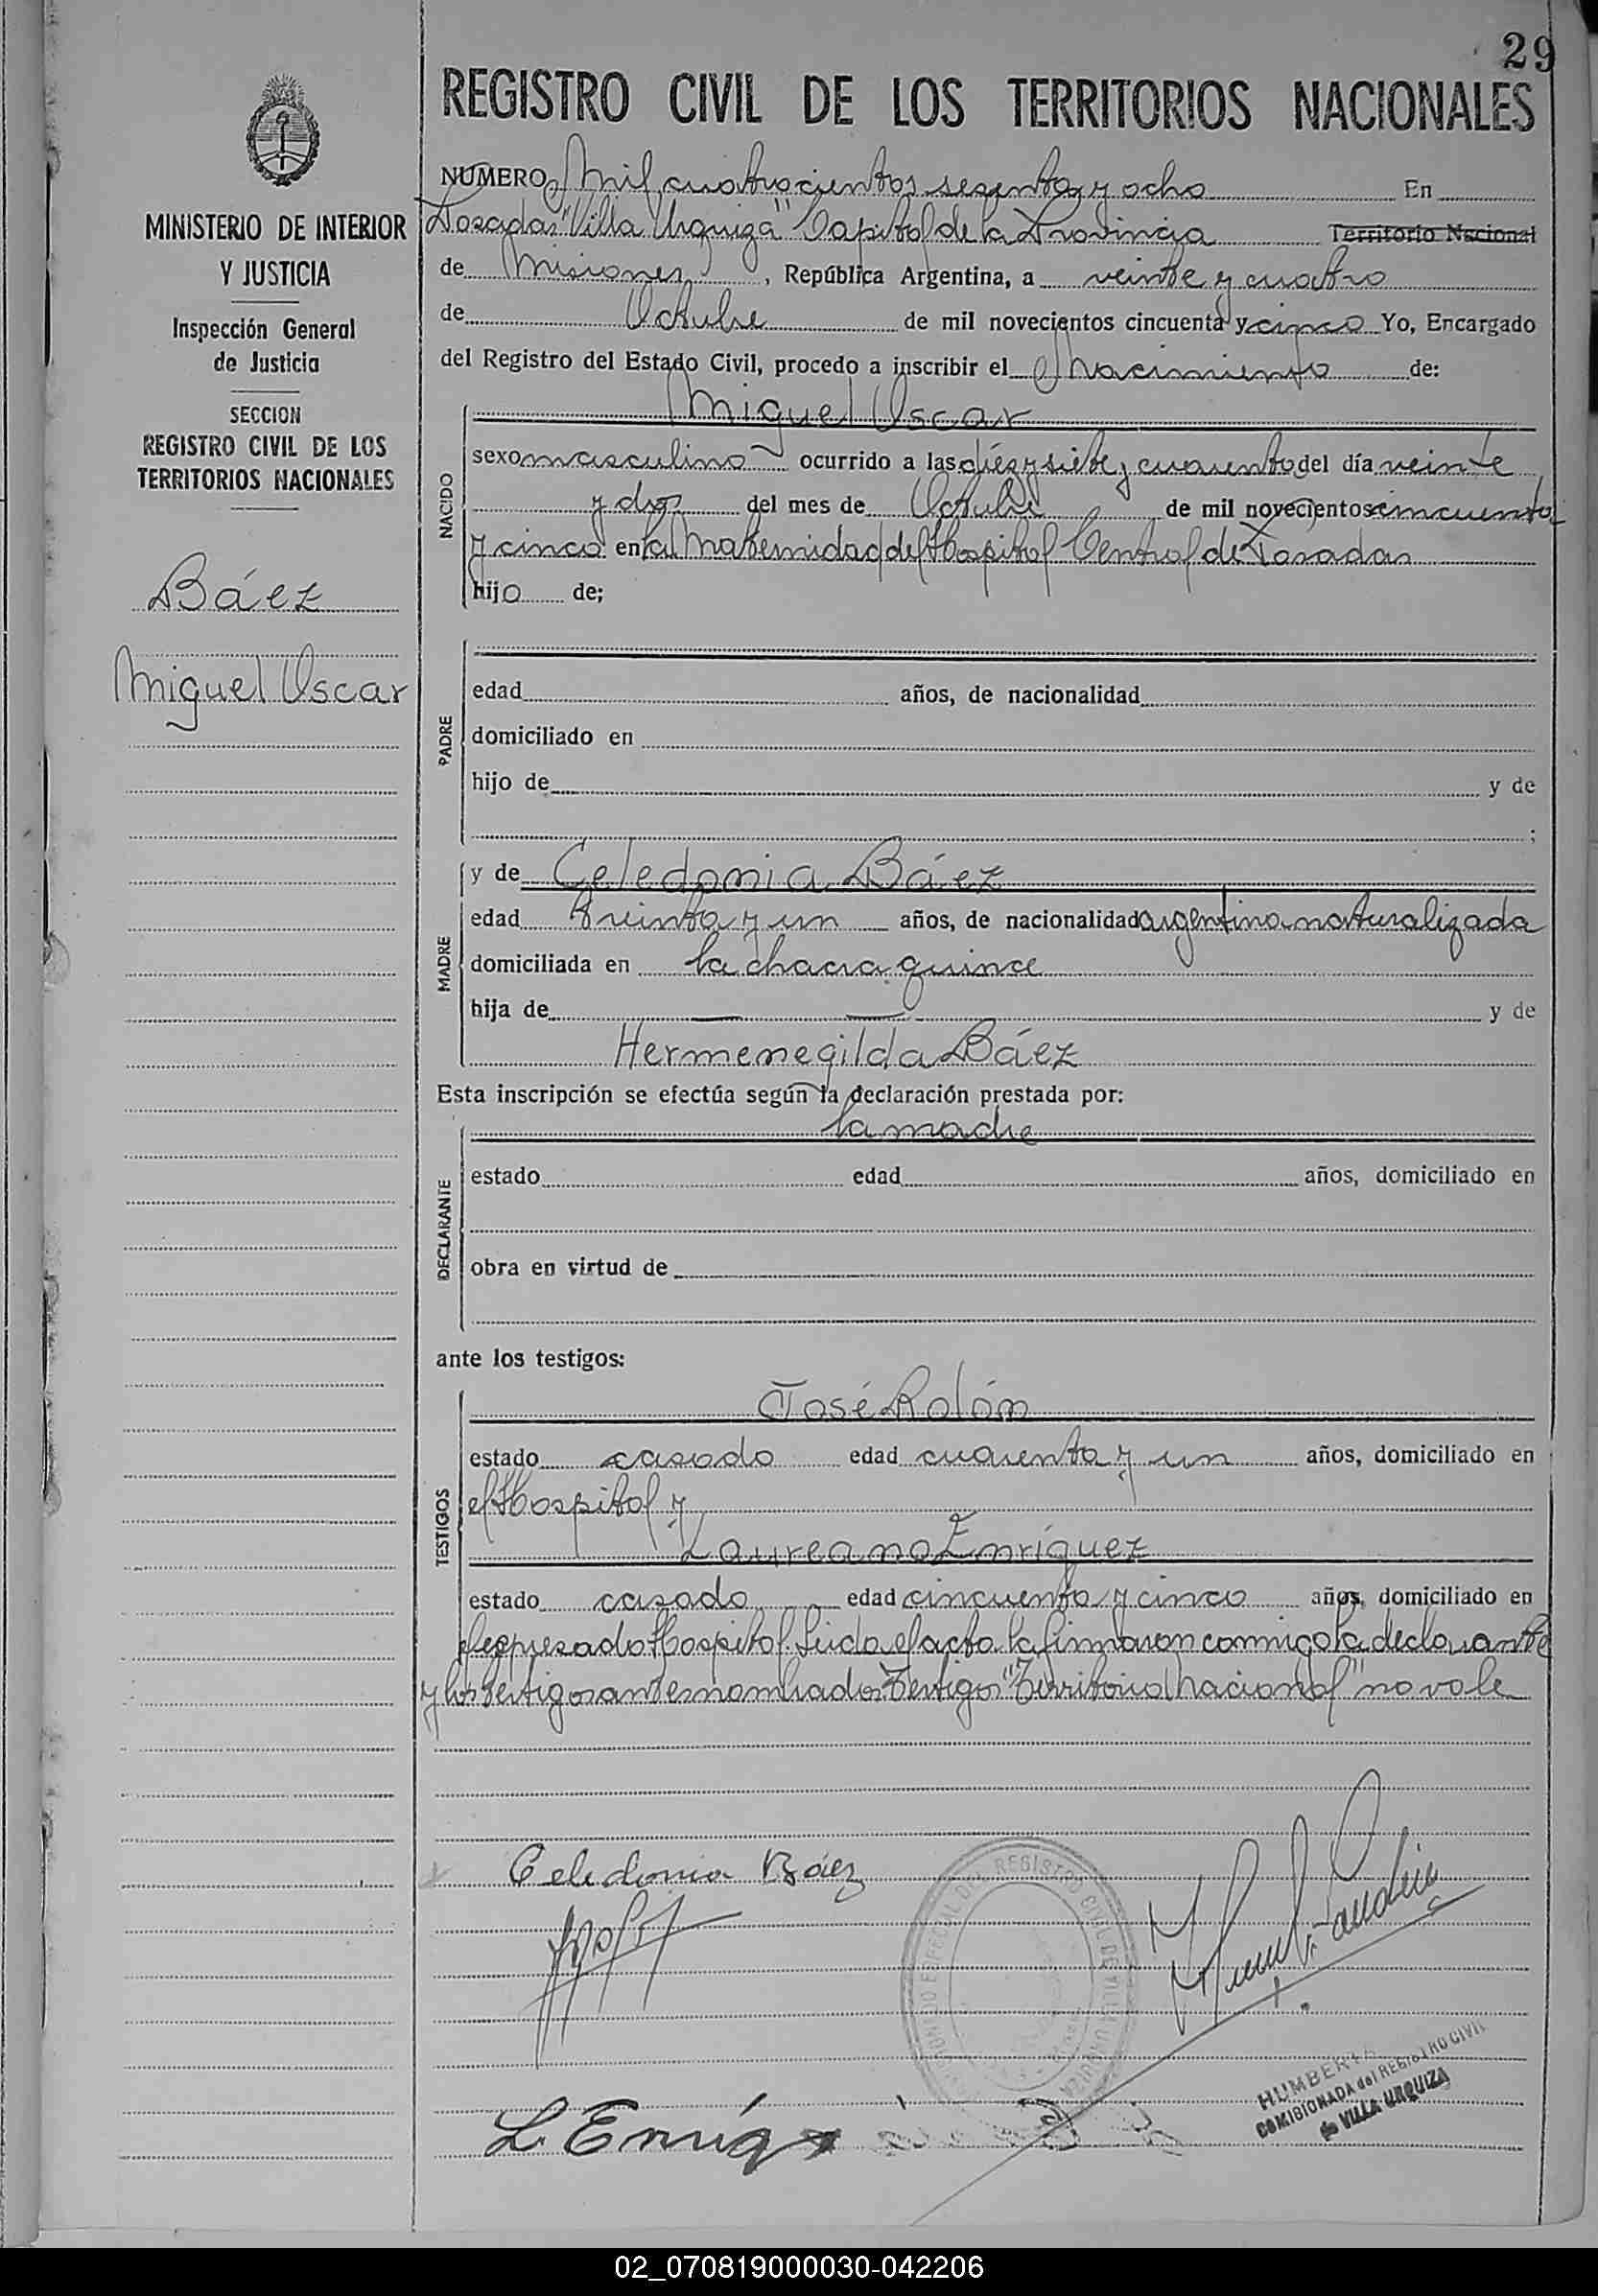 29
REGISTRO CIVIL DE LOS TERRITORIOS NACIONALES
MINISTERIO DE INTERIOR
Y JUSTICIA
Inspección General
de Justicia
SECCION
REGISTRO CIVIL DE LOS
TERRITORIOS NACIONALES
Báez
Miguel Oscar
NUMERO Mil cuatrocientos sesenta y ocho En
Posadas "Villa Urquiza" Capital de la Provincia Territorio Nacional
de Misiones, República Argentina, a veinte y cuatro
de Octubre de mil novecientos cincuenta y cinco Yo, Encargado
del Registro del Estado Civil, procedo a inscribir el Nacimiento de:
NACIDO
Miguel Oscar
sexo masculino ocurrido a las diez y siete y cuarenta del día veinte
y dos del mes de Octubre de mil novecientos cincuenta
y cinco en la Maternidad del Hospital Central de Posadas
hijo de;
PADRE
edad años, de nacionalidad
domiciliado en
hijo de y de
;
MADRE
y de Celedonia Báez
edad treinta y un años, de nacionalidad argentina naturalizada
domiciliada en la chacra quince
hija de — — y de
Hermenegilda Báez
Esta inscripción se efectúa según la declaración prestada por:
DECLARANTE
la madre
estado edad años, domiciliado en
obra en virtud de
ante los testigos:
TESTIGOS
José Rolón
estado casado edad cuarenta y un años, domiciliado en
el Hospital y
Laureano Enríquez
estado casado edad cincuenta y cinco años, domiciliado en
el expresado Hospital. Leida el acta la firmaron conmigo la declarante
y los testigos antes nombrados Testigos "Territorio Nacional" no vale
Celedonia Báez
L. Enriq
REGISTRO CIVIL DE VILLA URQUIZA
COMISIONADA del REGISTRO CIVIL
de VILLA URQUIZA
02_070819000030-042206